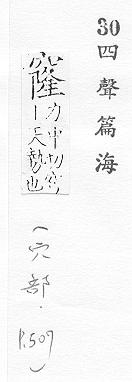 30四聲篇海
窿力中切穹
丨天勢也
(穴部.
P.509)